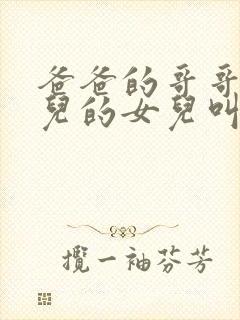 爸爸的哥哥
兒的女兒叫
攬一袖芬芳